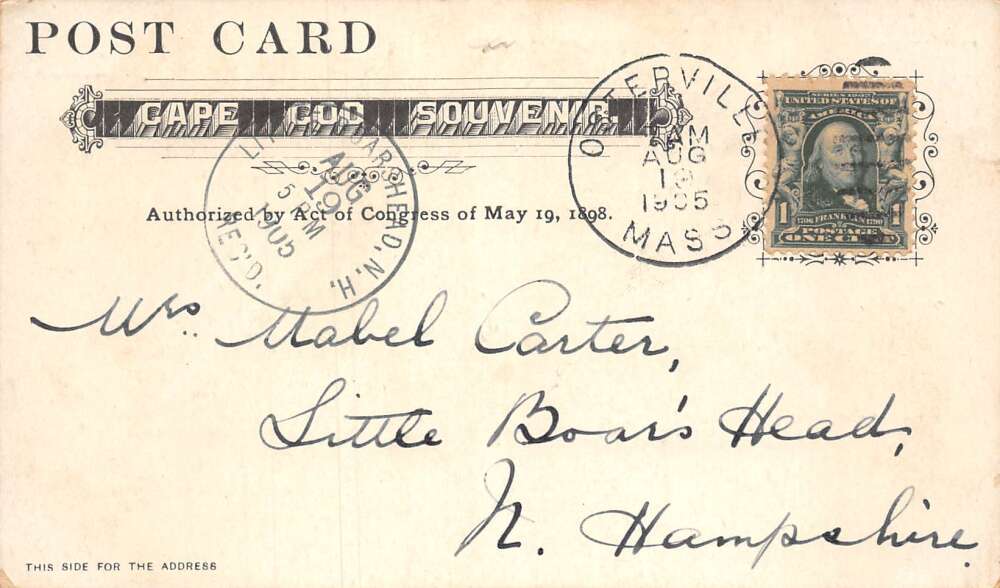 POST CARD
CAPE COD SOUVENIR.
Authorized by Act of Congress of May 19, 1898.
OSTERVILLE
AM
AUG
19
1905
MASS
LITTLE BOARSHEAD, N.H.
AUG
19
5 PM
1905
REC'D.
SERIES 1902
UNITED STATES OF
AMERICA
1706 FRANKLIN 1790
1 1
POSTAGE
ONE CENT
Mrs. Mabel Carter,
Little Boar's Head,
N. Hampshire.
THIS SIDE FOR THE ADDRESS